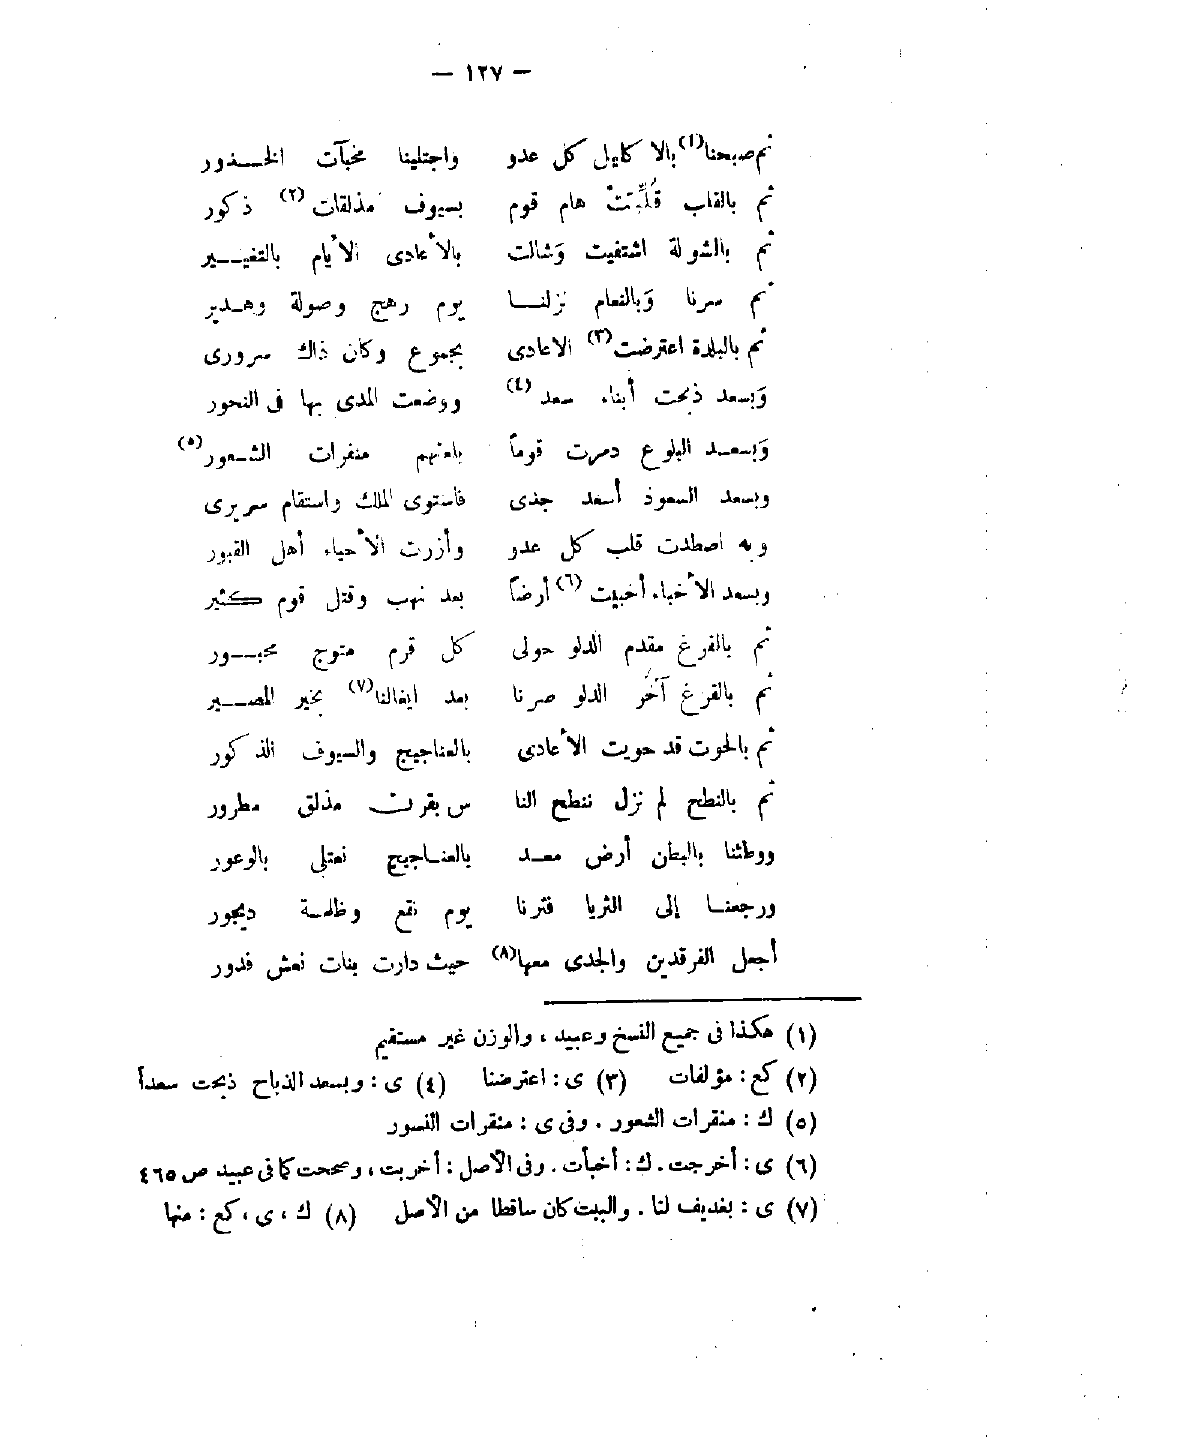 — ١٢٧ —
ثم صبحنا(١) بالاكايل كل عدو واجتلينا مخبآت الخدور
ثم بالقلب قُلِّبَتْ هام قوم بسيوف مذلقات(٢) ذكور
ثم بالشولة اشتفيت وَشالت بالأعادى الأيام بالتغيير
ثم سرنا وَبالنعام نزلنا يوم رهج وصولة وهدير
ثم بالبلدة اعترضت(٣) الاعادى بجموع وكان ذاك سرورى
وَبسعد ذبحت أبناء سعد(٤) ووضعت المدى بها فى النحور
وَبسعد البلوع دمرت قوماً بلعتهم منفرات الشعور(٥)
وبسعد السعود أسعد جدى فاستوى الملك واستقام سريرى
وبه اصطدت قلب كل عدو وأزرت الأحياء أهل القبور
وبسعد الأخباء أخبيت(٦) أرضاً بعد نهب وقتل قوم كثير
ثم بالفرغ مقدم الدلو حولى كل قرم متوج محبور
ثم بالفرغ آخَر الدلو صرنا بعد ايغالنا(٧) بخير المصير
ثم بالحوت قد حويت الأعادى بالعناجيج والسيوف الذكور
ثم بالنطح لم نزل ننطح النا س بقرن مذلق مطرور
ووطئنا بالبطن أرض معد بالعناجيج نعتلى بالوعور
ورجعنا إلى الثريا فثرنا يوم نقع وظلمة ديجور
أجعل الفرقدين والجدى معها(٨) حيث دارت بنات نعش فدور
(١) هكذا فى جميع النسخ وعبيد ، والوزن غير مستقيم
(٢) كع : مؤلفات (٣) ى : اعترضنا (٤) ى : وبسعد الذباح ذبحت سعداً
(٥) ك : منقرات الشعور . وفى ى : منقرات النسور
(٦) ى : أخرجت . ك : أخبأت . وفى الأصل : أخربت ، وصححت كما فى عبيد ص ٤٦٥
(٧) ى : بغديف لنا . والبيت كان ساقطا من الأصل (٨) ك ، ى ، كع : منها